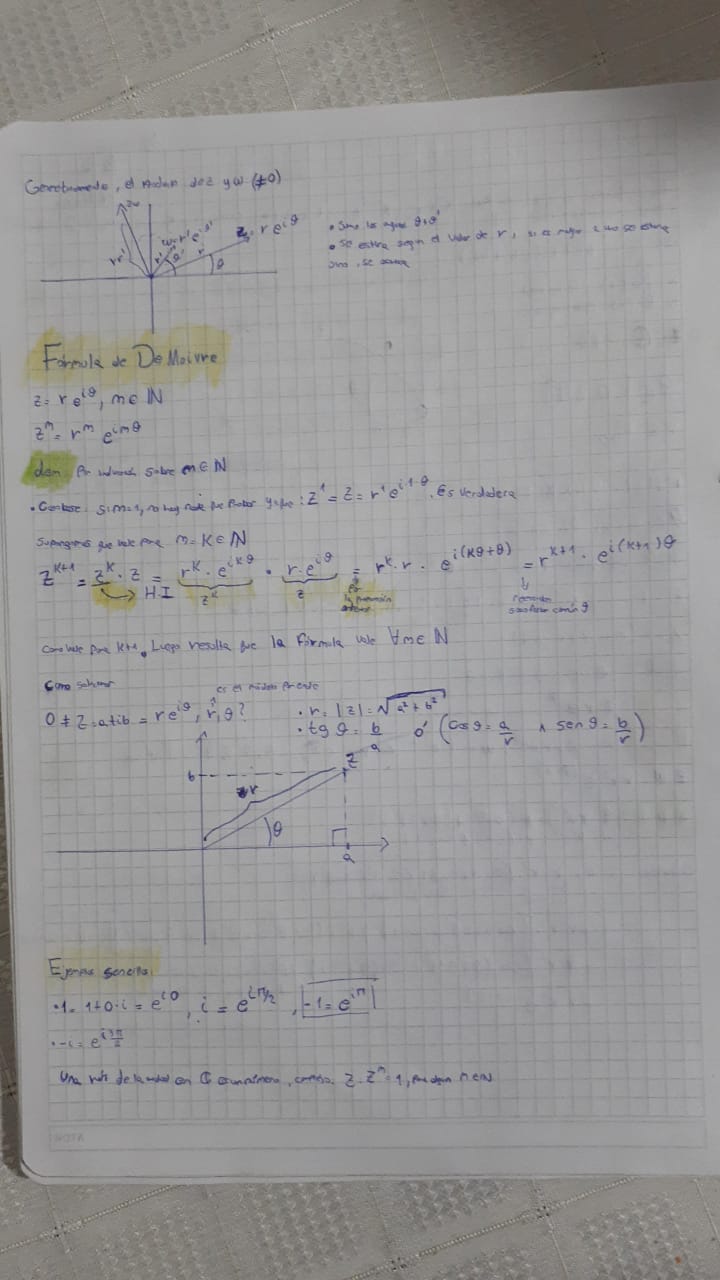 Geométricamente, el producto de z y ω (≠0)
zω
rr'
ω=r'e^{iθ'}
r'
θ'
r
z=re^{iθ}
θ
• Sumo los ángulos θ+θ'
• Se estira según el valor de r, si es mayor a uno se estira
sino, se contrae
Fórmula de De Moivre
z= r e^{iθ}, m∈ℕ
z^m= r^m e^{imθ}
dem Por inducción sobre m∈ℕ
• Caso base si m=1, no hay nada que probar ya que: z^1 = z = r^1 e^{i·1·θ}. Es verdadera
Supongamos que vale para m=k∈ℕ
z^{k+1} = z^k · z = r^k · e^{ikθ} · r·e^{iθ} = r^k · r · e^{i(kθ+θ)} = r^{k+1} · e^{i(k+1)θ}
H.I
z^k
z
por la
anterior
Como vale para k+1. Luego resulta que la fórmula vale ∀m∈ℕ
Como
0 ≠ z=a+ib = re^{iθ}, r,θ?
es el módulo
• r= |z|= √(a²+b²)
• tg θ = b/a ó (cos θ = a/r ∧ sen θ = b/r)
b
z
r
θ
a
Ejemplos sencillos
• 1= 1+0·i = e^{i0}, i = e^{iπ/2}, -1= e^{iπ}
• -i= e^{i3π/2}
Una raíz de la unidad en ℂ es un número complejo z·z^n=1, para algún n∈ℕ